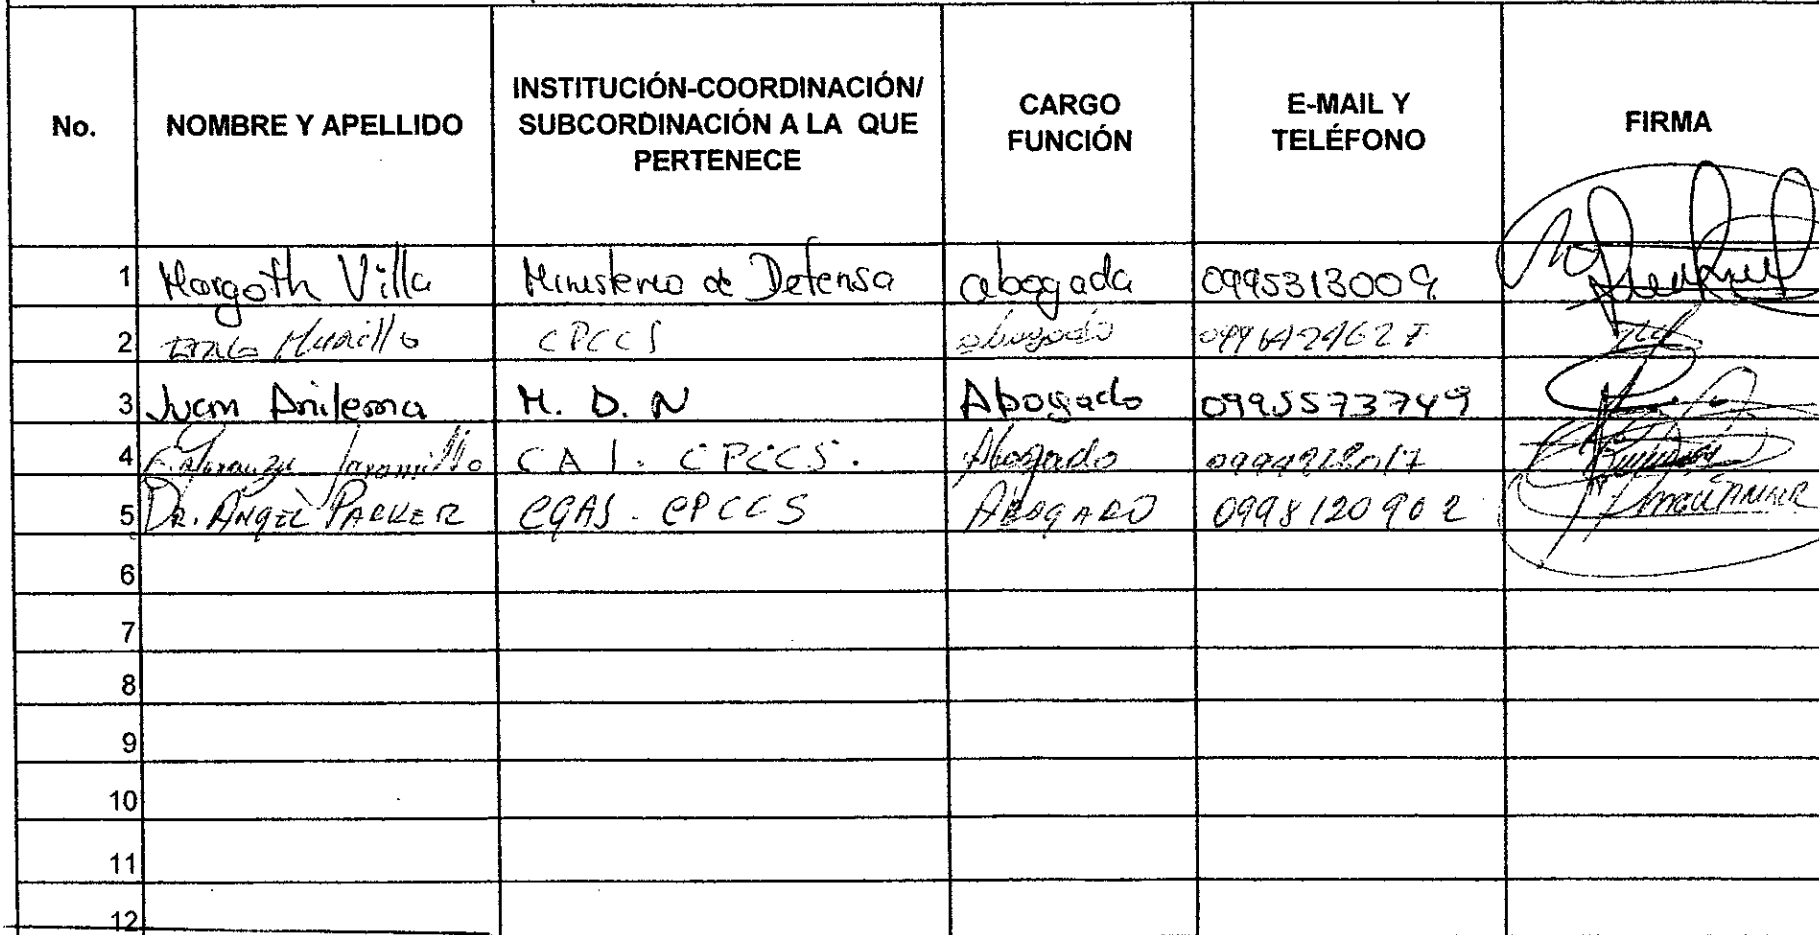 No.
NOMBRE Y APELLIDO
INSTITUCIÓN-COORDINACIÓN/
SUBCORDINACIÓN A LA QUE
PERTENECE
CARGO
FUNCIÓN
E-MAIL Y
TELÉFONO
FIRMA
1 Margoth Villa Ministerio de Defensa abogada 0995313009
2 Murillo CPCCS abogado
3 Juan M. D. N Abogado 0995573749
4 Jaramillo C A I. CPCCS. Abogado
5 DR. ANGEL PARKER CGAS. CPCCS ABOGADO 0998120902
6
7
8
9
10
11
12